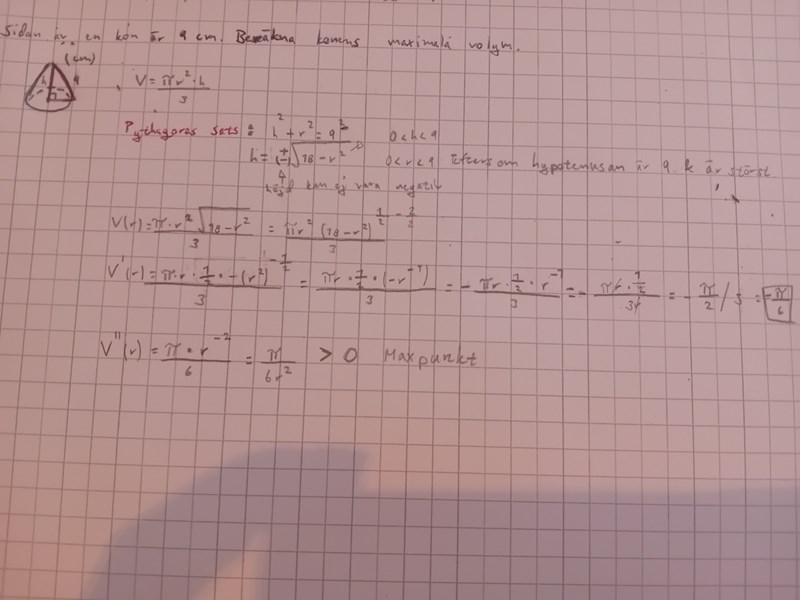 Sidan är en kon är 9 cm. Beräkna konens maximala volym.
(cm)
h 9
V = πr²·h / 3
Pythagoras sats: h² + r² = 9² 0<h<9
h = (±)√18-r² 0<r<9 Eftersom hypotenusan är 9 & är störst
kan ej vara negativ
V(r) = π·r²√18-r² / 3 = πr²(18-r²)^1/2 / 3
V'(r) = π·r·1/2·-(r²)^-1/2 / 3 = πr·1/2·(-r^-1) / 3 = - πr·1/2·r^-1 / 3 = - πr·1/2 / 3r = - π/2 / 3 = -π/6
V''(r) = π·r^-2 / 6 = π / 6r² > 0 Maxpunkt